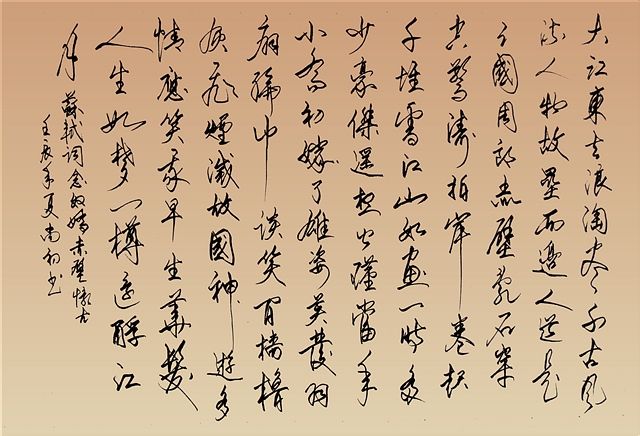 大江東去浪淘盡千古風
流人物故壘西邊人道是
三國周郎赤壁亂石穿
空驚濤拍岸卷起
千堆雪江山如畫一時多
少豪傑遥想公瑾當年
小喬初嫁了雄姿英發羽
扇綸巾談笑間檣櫓
灰飛煙滅故國神遊多
情應笑我早生華髮
人生如夢一樽還酹江
月
蘇軾詞念奴嬌赤壁懷古
壬辰年夏尚初书